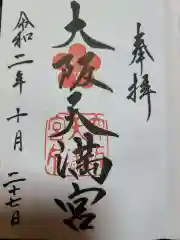 奉拝
大阪天満宮
令和二年十月二十七日